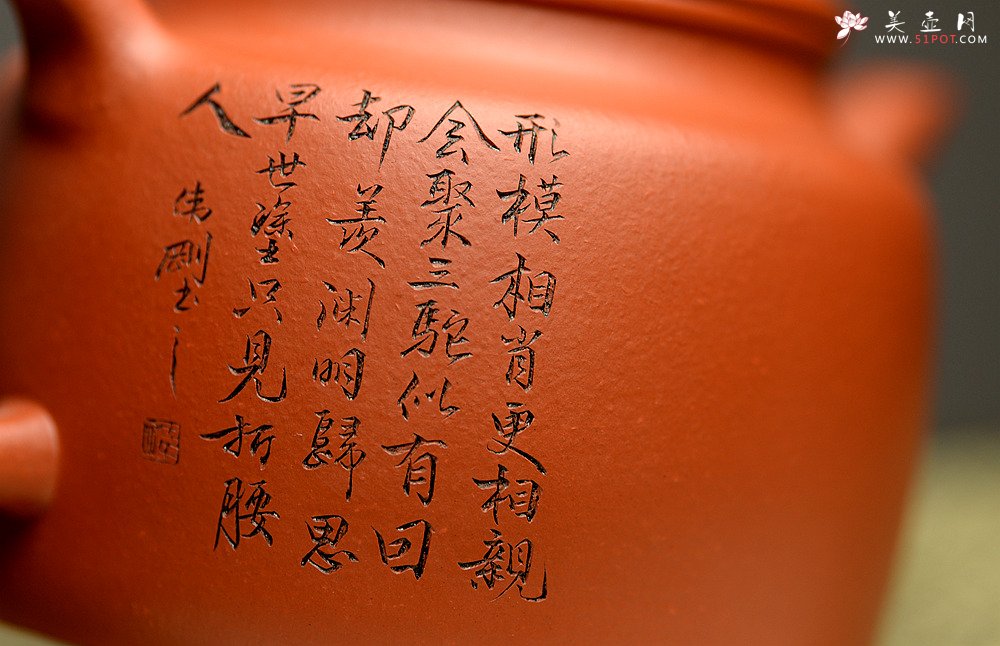 形模相肖更相親
会聚三駝似有囙
却羡渊明歸思
早世塗只見折腰
人
伟剛书之
美壶网
WWW.51POT.COM